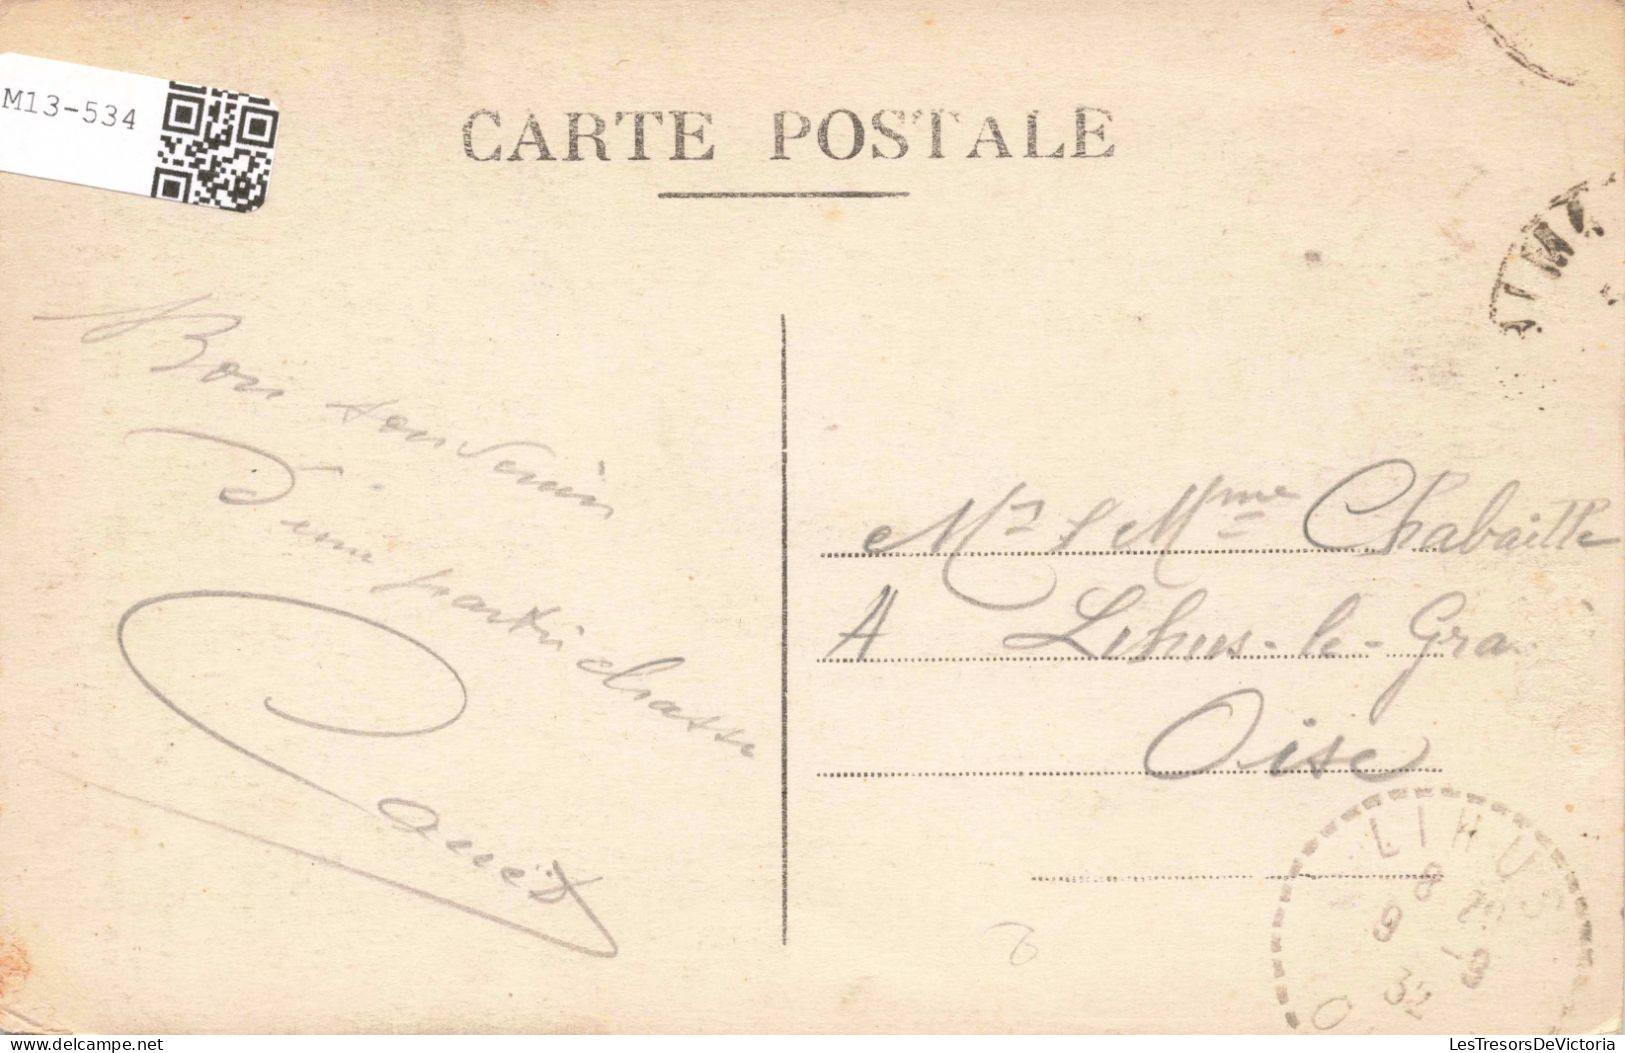 M13-534
CARTE POSTALE
Bon souvenir
d'une partie chasse
Mr & Mme Chabaille
A Lihus-le-Gra
Oise
LIHUS
8
9 -9
32
O
delcampe.net
LesTresorsDeVictoria